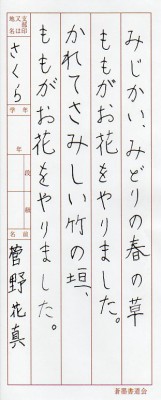 みじかい、みどりの春の草
ももがお花をやりました。
かれてさみしい竹の垣、
ももがお花をやりました。
支部印又は地名
さくら
学年
年
段級
名前
菅野花真
蒼墨書道会